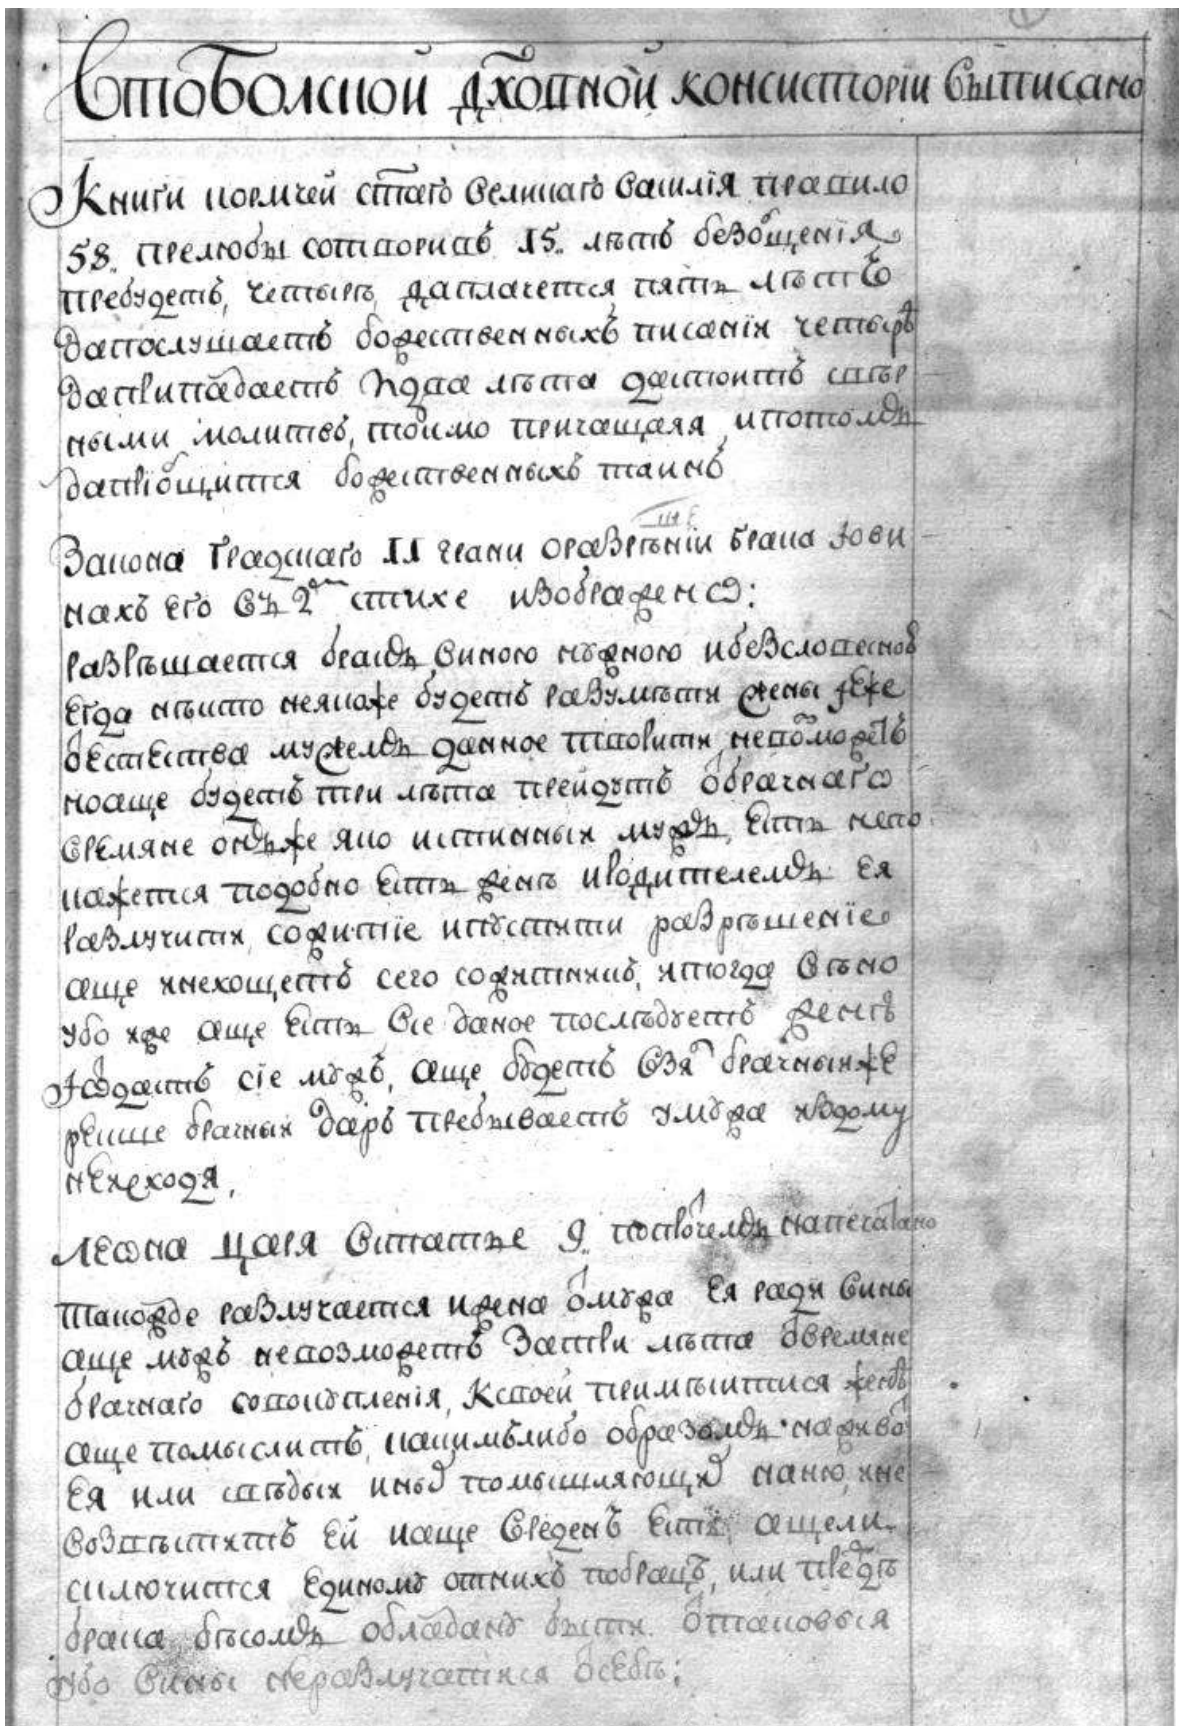 Втоболской дховной консистории выписано
Книги кормчей стаго великаго василїя правило
58. прелюбы сотворивъ 15. лѣтъ безобщенїя
пребудетъ, четыре, даплачется пять лѣтъ
дапослушаетъ божественныхъ писанїи четыре
даприпадаетъ идва лѣта дастоитъ свѣр
ными молитвъ, токмо причащаяя, ипотомъ
даприобщится божественныхъ таинъ
Закона градскаго 11 грани оразрѣшенїи брака юви
нахъ его въ 2 стихе изображено:
разрѣшается бракъ виною нужною ибезсловесною
егда нѣкто неяможе будетъ разумѣти жены яже
оестества мужемъ данное творити неможетъ
ноаще будетъ три лѣта прейдутъ обрачнаго
времяне онъже яко истинныи мужъ есть непо
кажется подобно есть женѣ иродителемъ ея
разлучити сожитїе ипустити разрѣшенїе
аще инехощетъ сего сожитникъ, итогда вѣно
убо иже аще есть все даное послѣдуетъ женѣ
иѡдастъ сїе мужъ, аще будетъ взя брачныиже
рекше брачныи даръ пребываетъ умужа иѡдому
неисходя,
Леона царя встатье 9. попрочемъ напечатано
такожде разлучается ижена омужа ея ради вины
аще мужъ невозможетъ затри лѣта овремяне
брачнаго совокупленїя, ксвоей примѣситися женѣ
аще помыслитъ, кацимълибо образомъ наживо
ея или свѣдыи иныхъ помышляющих наню, ине
возвѣститъ ей каще вреденъ есть, ащели
сключится единому отнихъ побрацѣ, или предъ
брака бѣсомъ обладану быти. отаковыя
убо вины неразлучатися осебѣ: